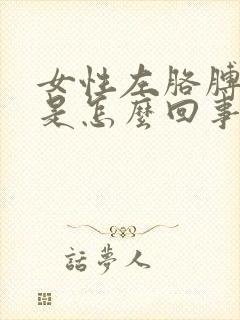 女性左胳膊
是怎麼回事
話夢人